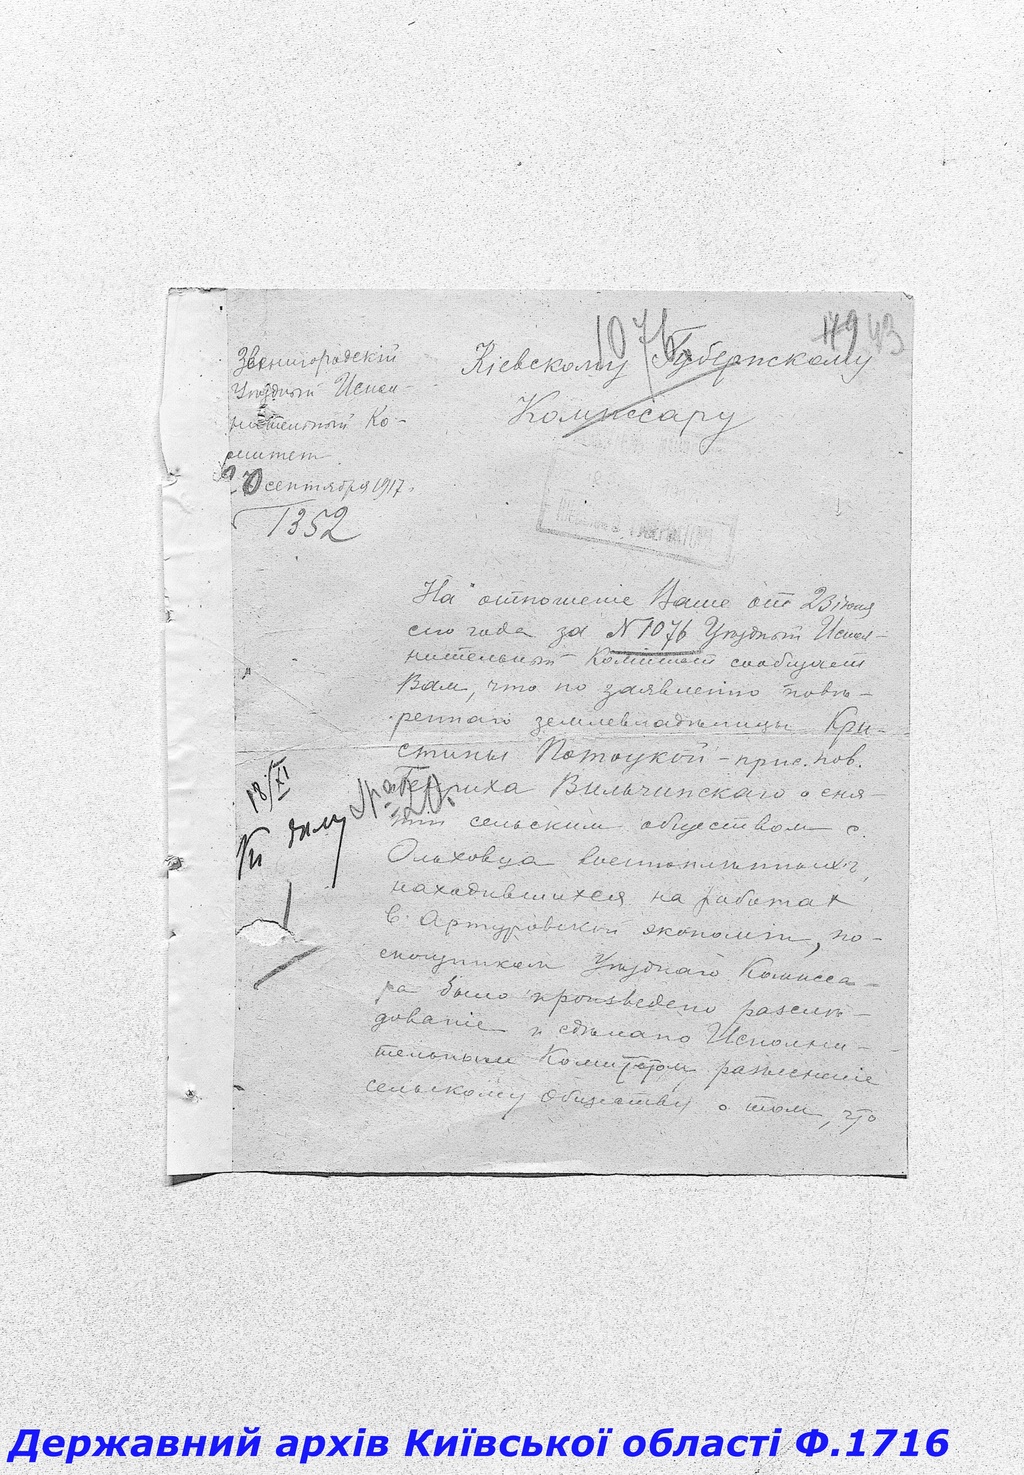 1076
43
Звенигородскій
Уѣздный Испол-
нительный Ко-
митет
20 сентября 1917 г.
1352
Кіевскому Губернскому
Комиссару
На отношеніе Ваше от 23 іюня
сего года за № 1076 Уѣздный Испол-
нительный Комитет сообщает
Вам, что по заявленію повѣ-
реннаго землевладѣлицы Кри-
стины Потоцкой - прис. пов.
Генриха Вильчинскаго о сня-
тіи сельским обществом с.
Ольховца военноплѣнных,
находившихся на работах
в Артуровской экономіи, по-
мощником Уѣзднаго Комисса-
ра было произведено разслѣ-
дованіе и сдѣлано Исполни-
тельным Комитетом разъясненіе
сельскому обществу о том, что
18/XI
К дѣлу
Державний архів Київської області Ф.1716